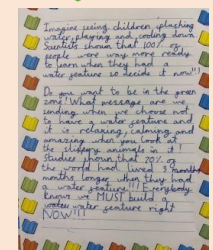 Imagine seeing children splashing
water, playing and cooling down
Scientists shown that 100% of
people were way more ready
to learn when they had a
water feature so decide it now!!!
Do you want to be in the green
zone? What message are we
sending when we choose not
to have a water feature and
it is relaxing, calming and
amazing when you look at
the slippery animals in it!
Studies shown that 70% of
the world had lived months
months longer when they had
a water feature!!! Everybody
knows we MUST build a
water feature right
NOW!!!